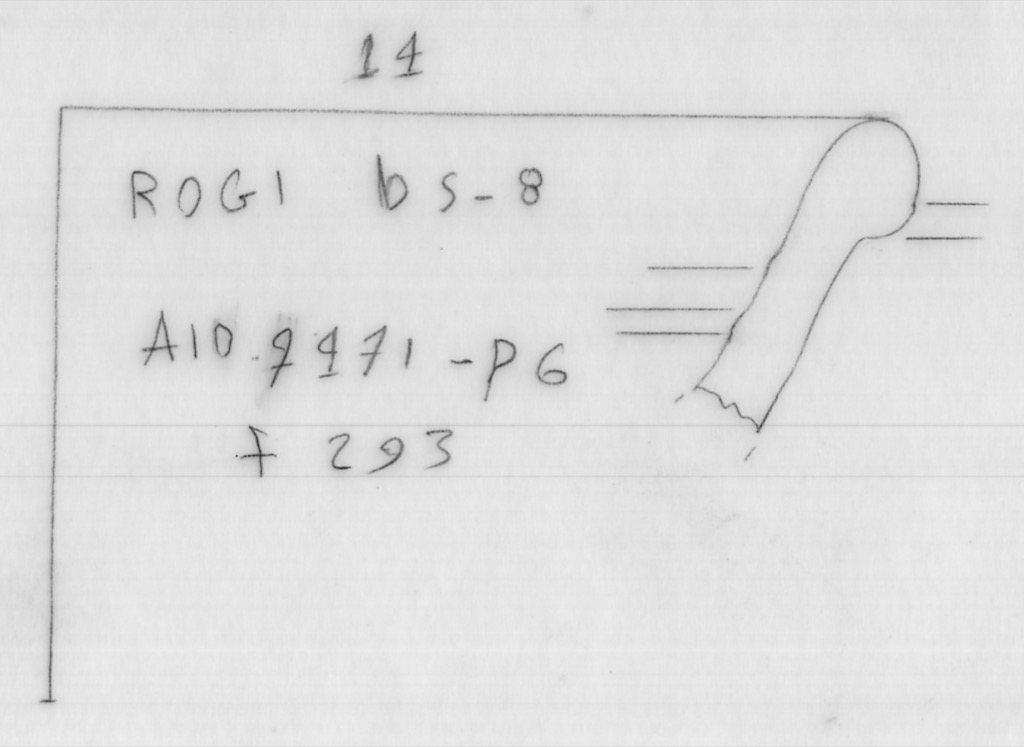 14
ROGI bS-8
A10.9471-P6
F 293